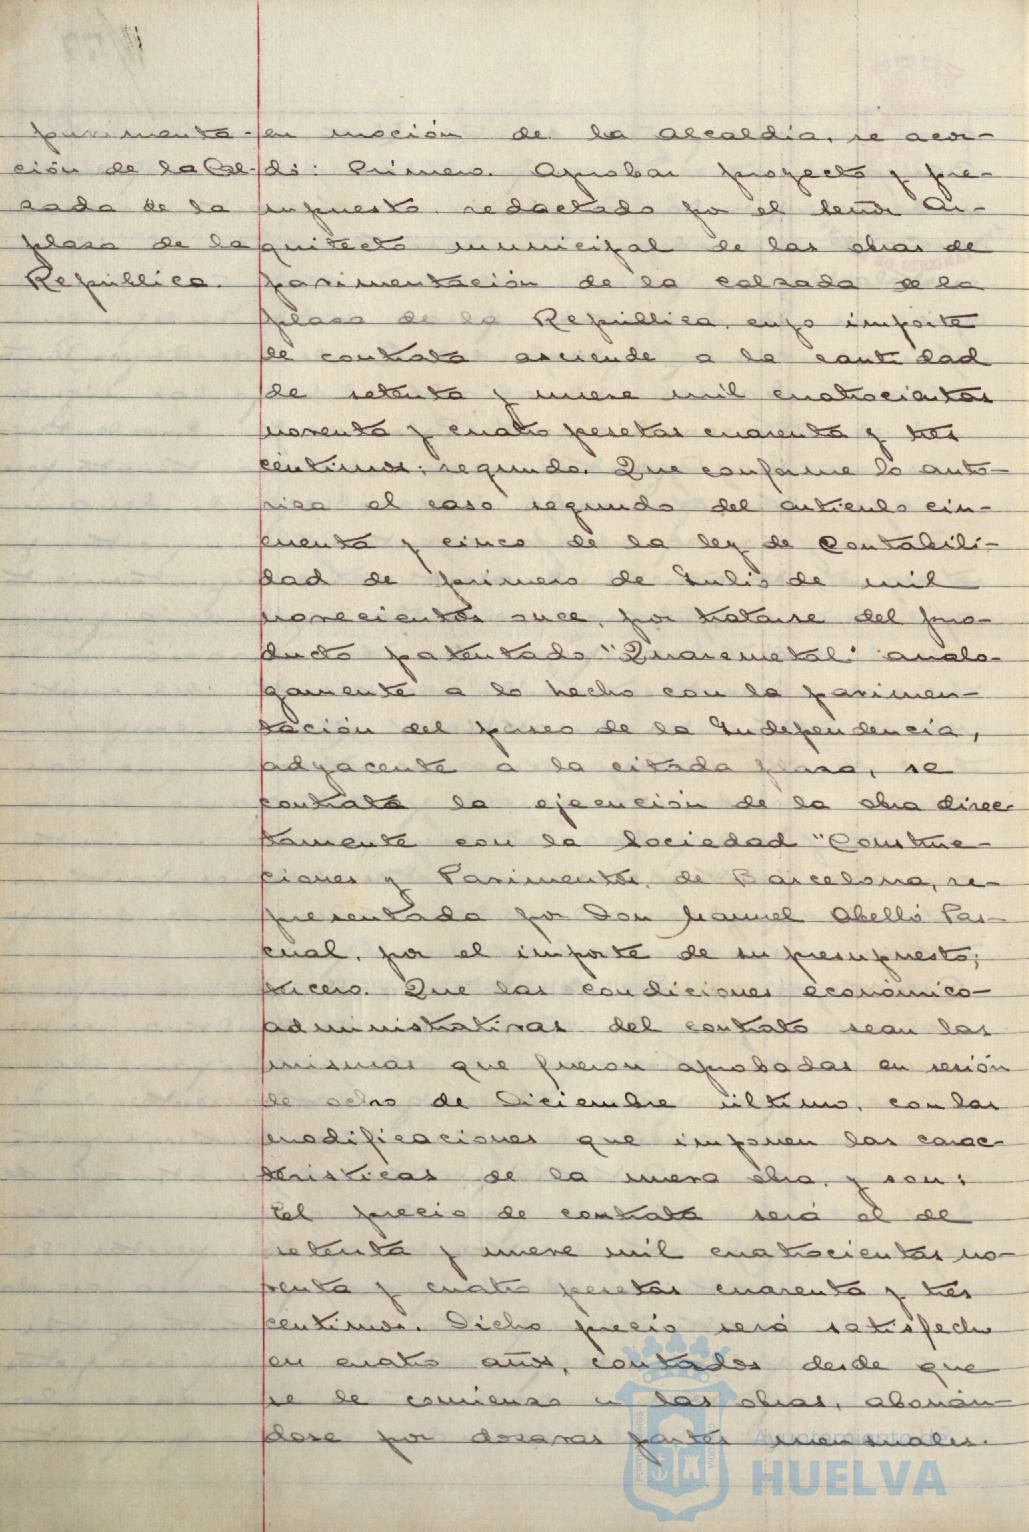 pavimenta-
ción de la Cal-
zada de la
plaza de la
República.
en moción de la Alcaldía, se acor-
dó: Primero. Aprobar proyecto y pre-
supuesto redactado por el Señor Ar-
quitecto municipal de las obras de
pavimentación de la calzada de la
plaza de la República, cuyo importe
de contrata asciende a la cantidad
de setenta y nueve mil cuatrocientas
noventa y cuatro pesetas cuarenta y tres
céntimos; segundo. Que conforme lo auto-
riza el caso segundo del artículo cin-
cuenta y cinco de la ley de Contabili-
dad de primero de Julio de mil
novecientos once, por tratarse del pro-
ducto patentado "Cuaremetal" analo-
gamente a lo hecho con la pavimen-
tación del paseo de la Independencia,
adyacente a la citada plaza, se
contrata la ejecución de la obra direc-
tamente con la Sociedad "Construc-
ciones y Pavimentos, de Barcelona, re-
presentada por Don Manuel Abelló Pas-
cual, por el importe de su presupuesto;
tercero. Que las condiciones económico-
administrativas del contrato sean las
mismas que fueron aprobadas en sesión
de ocho de Diciembre último, con las
modificaciones que imponen las carac-
terísticas de la nueva obra, y son:
El precio de contrata será el de
setenta y nueve mil cuatrocientas no-
venta y cuatro pesetas cuarenta y tres
céntimos. Dicho precio será satisfecho
en cuatro años, contados desde que
se de comienzo a las obras, abonán-
dose por dozavas partes mensuales.
Ayuntamiento de
HUELVA